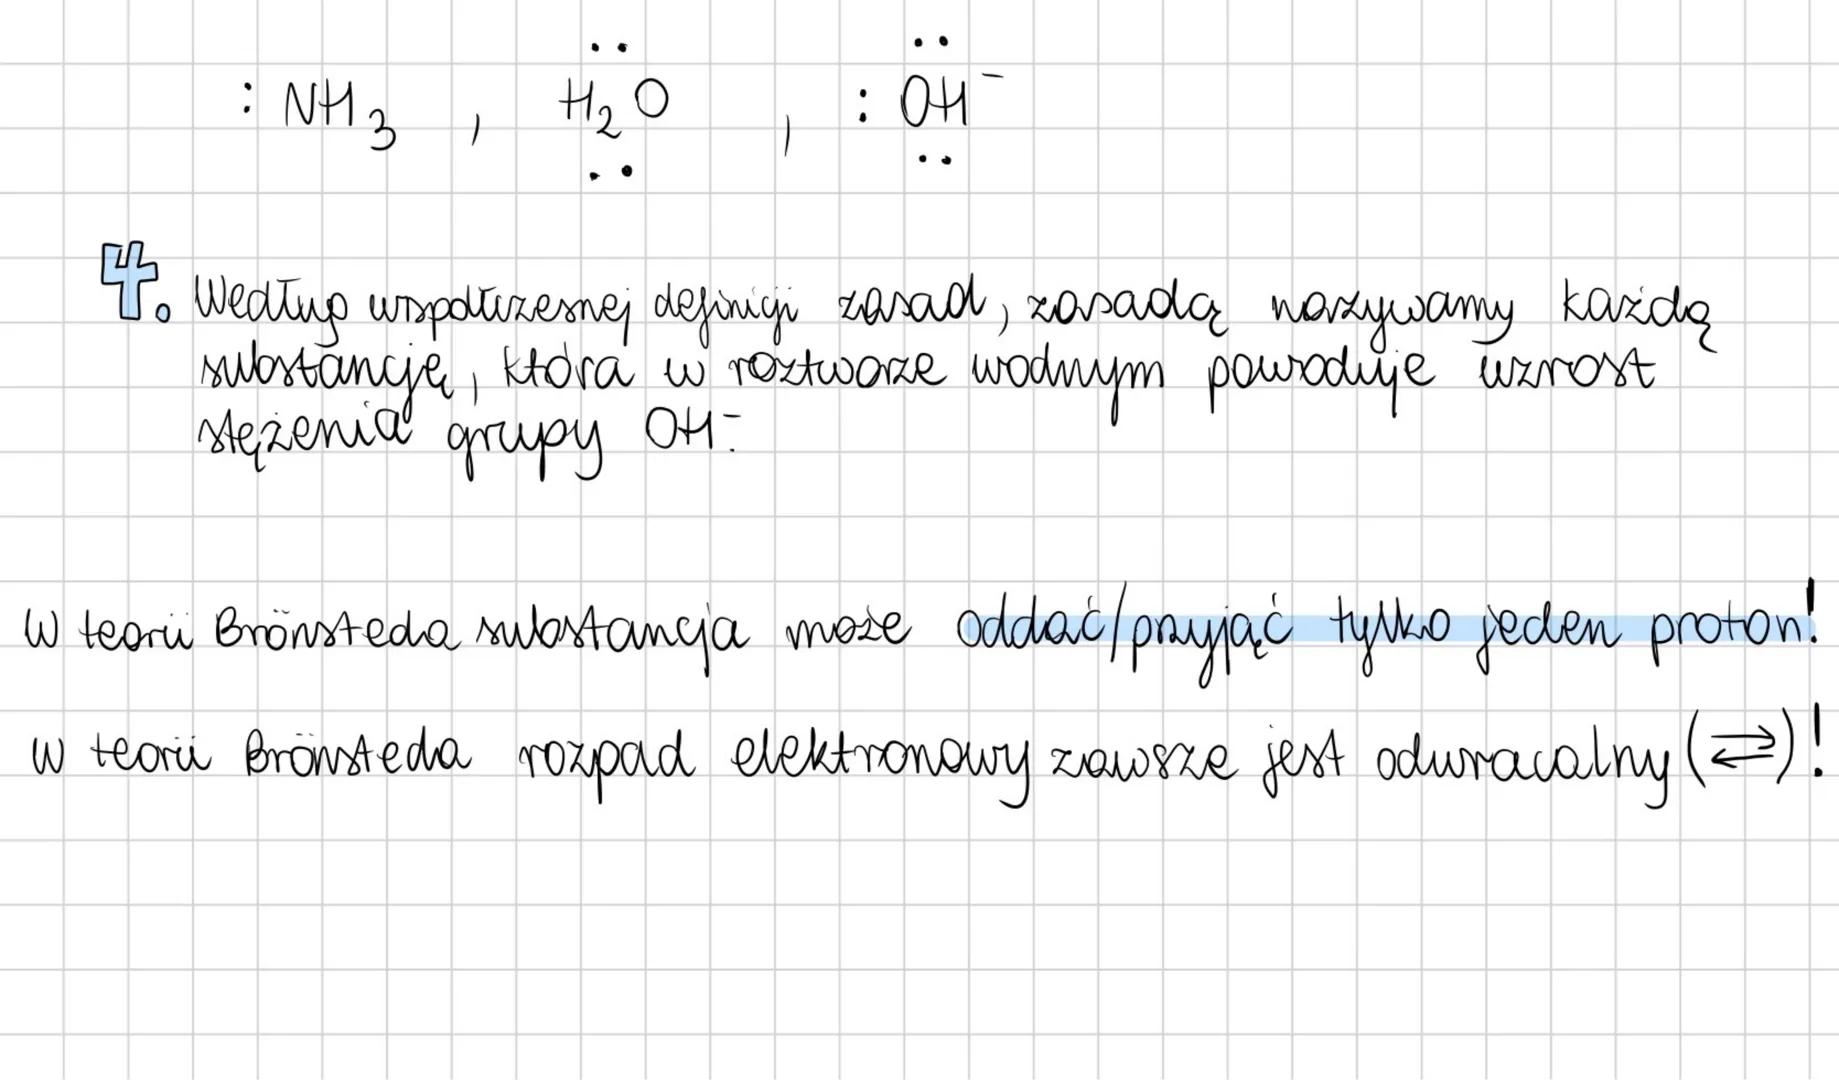 : NH₃ , H₂O , : OH⁻
4. Według współczesnej definicji zasad, zasadą nazywamy każdą
substancję, która w roztworze wodnym powoduje wzrost
stężenia grupy OH⁻.
W teorii Brönsteda substancja może oddać/przyjąć tylko jeden proton!
W teorii Brönsteda rozpad elektronowy zawsze jest odwracalny (⇄)!